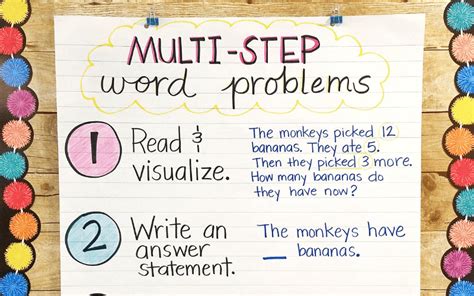 MULTI-STEP
word problems
1 Read &
visualize.
The monkeys picked 12
bananas. They ate 5.
Then they picked 3 more.
How many bananas do
they have now?
2 Write an
answer
statement.
The monkeys have
__ bananas.